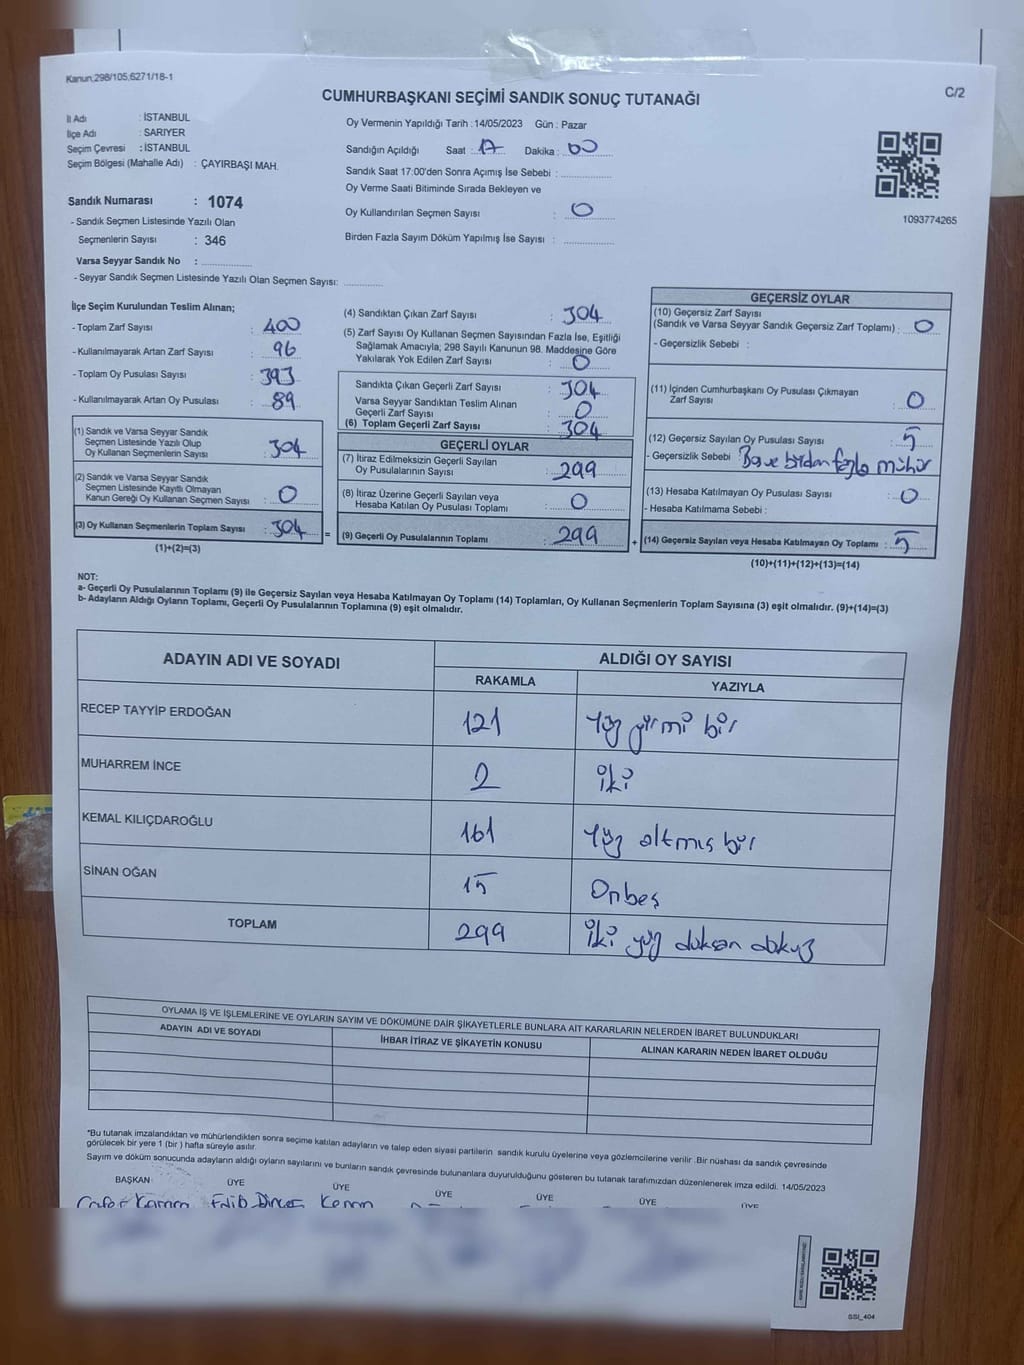 Kanun;298/105;6271/18-1
C/2
CUMHURBAŞKANI SEÇİMİ SANDIK SONUÇ TUTANAĞI
İl Adı : İSTANBUL
İlçe Adı : SARIYER
Seçim Çevresi : İSTANBUL
Seçim Bölgesi (Mahalle Adı) : ÇAYIRBAŞI MAH.
Sandık Numarası : 1074
- Sandık Seçmen Listesinde Yazılı Olan
Seçmenlerin Sayısı : 346
Varsa Seyyar Sandık No :
- Seyyar Sandık Seçmen Listesinde Yazılı Olan Seçmen Sayısı:
Oy Vermenin Yapıldığı Tarih : 14/05/2023 Gün : Pazar
Sandığın Açıldığı Saat : 17 Dakika : 00
Sandık Saat 17:00'den Sonra Açımış İse Sebebi :
Oy Verme Saati Bitiminde Sırada Bekleyen ve
Oy Kullandırılan Seçmen Sayısı : 0
Birden Fazla Sayım Döküm Yapılmış İse Sayısı :
1093774265
İlçe Seçim Kurulundan Teslim Alınan;
- Toplam Zarf Sayısı : 400
- Kullanılmayarak Artan Zarf Sayısı : 96
- Toplam Oy Pusulası Sayısı : 393
- Kullanılmayarak Artan Oy Pusulası : 89
(1) Sandık ve Varsa Seyyar Sandık
Seçmen Listesinde Yazılı Olup
Oy Kullanan Seçmenlerin Sayısı : 304
(2) Sandık ve Varsa Seyyar Sandık
Seçmen Listesinde Kayıtlı Olmayan
Kanun Gereği Oy Kullanan Seçmen Sayısı : 0
(3) Oy Kullanan Seçmenlerin Toplam Sayısı : 304
(1)+(2)=(3)
(4) Sandıktan Çıkan Zarf Sayısı : 304
(5) Zarf Sayısı Oy Kullanan Seçmen Sayısından Fazla İse, Eşitliği
Sağlamak Amacıyla; 298 Sayılı Kanunun 98. Maddesine Göre
Yakılarak Yok Edilen Zarf Sayısı : 0
Sandıkta Çıkan Geçerli Zarf Sayısı : 304
Varsa Seyyar Sandıktan Teslim Alınan
Geçerli Zarf Sayısı : 0
(6) Toplam Geçerli Zarf Sayısı : 304
GEÇERLİ OYLAR
(7) İtiraz Edilmeksizin Geçerli Sayılan
Oy Pusulalarının Sayısı : 299
(8) İtiraz Üzerine Geçerli Sayılan veya
Hesaba Katılan Oy Pusulası Toplamı : 0
= (9) Geçerli Oy Pusulalarının Toplamı : 299
GEÇERSİZ OYLAR
(10) Geçersiz Zarf Sayısı
(Sandık ve Varsa Seyyar Sandık Geçersiz Zarf Toplamı) : 0
- Geçersizlik Sebebi :
(11) İçinden Cumhurbaşkanı Oy Pusulası Çıkmayan
Zarf Sayısı : 0
(12) Geçersiz Sayılan Oy Pusulası Sayısı : 5
- Geçersizlik Sebebi : Boş ve birden fazla mühür
(13) Hesaba Katılmayan Oy Pusulası Sayısı : 0
- Hesaba Katılmama Sebebi :
+ (14) Geçersiz Sayılan veya Hesaba Katılmayan Oy Toplamı : 5
(10)+(11)+(12)+(13)=(14)
NOT:
a- Geçerli Oy Pusulalarının Toplamı (9) ile Geçersiz Sayılan veya Hesaba Katılmayan Oy Toplamı (14) Toplamları, Oy Kullanan Seçmenlerin Toplam Sayısına (3) eşit olmalıdır. (9)+(14)=(3)
b- Adayların Aldığı Oyların Toplamı, Geçerli Oy Pusulalarının Toplamına (9) eşit olmalıdır.
ADAYIN ADI VE SOYADI ALDIĞI OY SAYISI
RAKAMLA YAZIYLA
RECEP TAYYİP ERDOĞAN 121 Yüz yirmi bir
MUHARREM İNCE 2 iki
KEMAL KILIÇDAROĞLU 161 Yüz altmış bir
SİNAN OĞAN 15 Onbeş
TOPLAM 299 iki yüz doksan dokuz
OYLAMA İŞ VE İŞLEMLERİNE VE OYLARIN SAYIM VE DÖKÜMÜNE DAİR ŞİKAYETLERLE BUNLARA AİT KARARLARIN NELERDEN İBARET BULUNDUKLARI
ADAYIN ADI VE SOYADI İHBAR İTİRAZ VE ŞİKAYETİN KONUSU ALINAN KARARIN NEDEN İBARET OLDUĞU
*Bu tutanak imzalandıktan ve mühürlendikten sonra seçime katılan adayların ve talep eden siyasi partilerin sandık kurulu üyelerine veya gözlemcilerine verilir .Bir nüshası da sandık çevresinde
görülecek bir yere 1 (bir ) hafta süreyle asılır.
Sayım ve döküm sonucunda adayların aldığı oyların sayılarını ve bunların sandık çevresinde bulunanlara duyurulduğunu gösteren bu tutanak tarafımızdan düzenlenerek imza edildi. 14/05/2023
BAŞKAN ÜYE ÜYE ÜYE ÜYE ÜYE ÜYE
Cafer Kenan
SSI_404